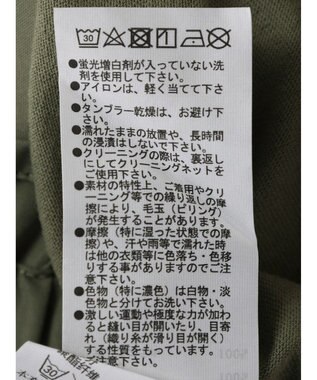 30
●蛍光増白剤が入っていない洗
剤を使用して下さい。
●アイロンは、軽く当てて下さ
い。
●タンブラー乾燥は、お避け下
さい。
●濡れたままの放置や、長時間
の浸漬はしないで下さい。
●クリーニングの際は、裏返し
にしてクリーニングネットを
ご使用下さい。
●素材の特性上、ご着用やクリ
ーニング等での繰り返しの摩
擦により、毛玉（ピリング）
が発生することがあります。
●摩擦（特に湿った状態での摩
擦）や、汗や雨等で濡れた時
は他の衣類等に色落ち・色移
りする事がありますのでご注
意下さい。
●色物（特に濃色）は白物・淡
色物と分けてお洗い下さい。
●激しい運動や極度な力が加わ
ると縫い目が開いたり、目寄
れ（織り糸が滑り目が開く）
する性質をもっています。
30